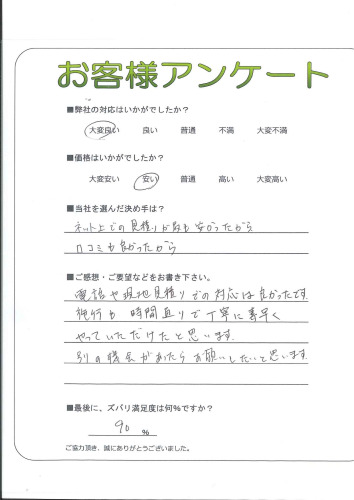 お客様アンケート
■弊社の対応はいかがでしたか?
大変良い 良い 普通 不満 大変不満
■価格はいかがでしたか?
大変安い 安い 普通 高い 大変高い
■当社を選んだ決め手は?
ネット上での見積りが最も安かったから
口コミも良かったから
■ご感想・ご要望などをお書き下さい。
電話や現地見積りでの対応は良かったです
施行も時間通りで丁寧に素早く
やっていただけたと思います。
別の機会があったらお願いしたいと思います。
■最後に、ズバリ満足度は何%ですか?
90 %
ご協力頂き、誠にありがとうございました。